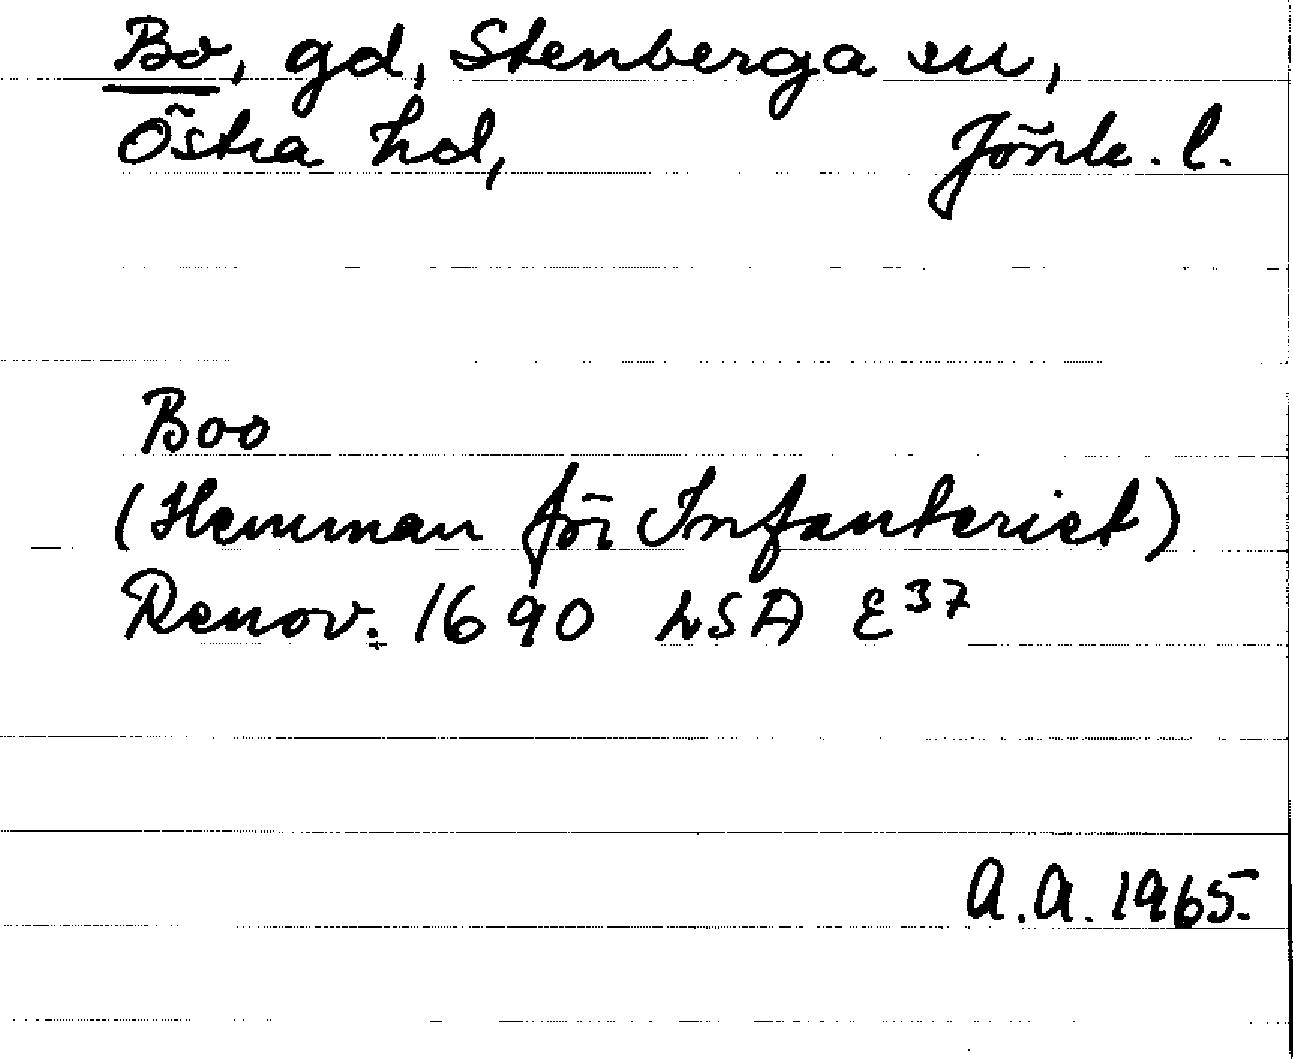 Bo, gd, Stenberga sn,
Östra hd, Jönk. l.
Boo
(Hemman för Infanteriet)
Renov. 1690 LSA E37
A.A. 1965.